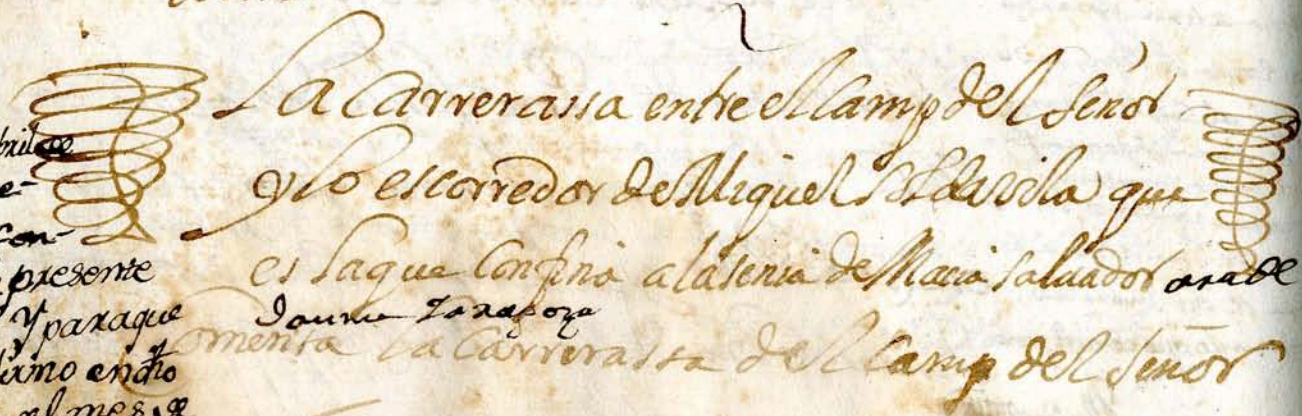 La Carrerassa entre el Camp del Señor
y lo escorredor de Miguel que
es la que Confina a la senia de Macia Saluador ara de
Jaume Zaragoza
Comensa la Carrerassa del Camp del Señor
con-
presente
Y paraque